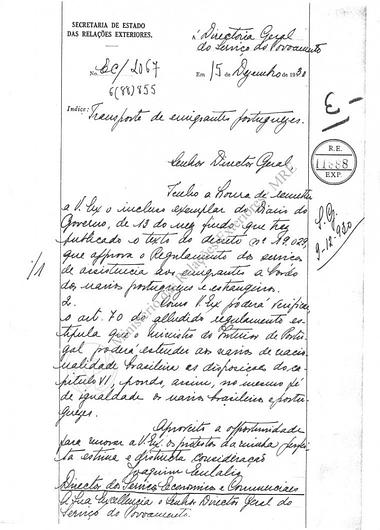 SECRETARIA DE ESTADO
DAS RELAÇÕES EXTERIORES.
Á Directoria Geral
do Serviço do Povoamento
No. EC/2067
6(88)855
Em 15 de Dezembro de 1930
Indice: Transporte de emigrantes portuguezes.
R.E.
11888
EXP.
S.G.
9-12-930
Senhor Director Geral,
Tenho a honra de remetter
a V. Ex. o incluso exemplar do Diario do
Governo, de 13 do mez findo, que traz
publicado o texto do decreto nº 19.029,
que approva o Regulamento dos serviços
de assistencia aos emigrantes a bordo
dos navios portuguezes e estrangeiros.
/1
2. Como V. Ex. poderá verificar,
o art. 70 do alludido regulamento es-
tipula que o ministro do Interior de Portu-
gal poderá estender aos navios de nacio-
nalidade brasileira as disposições do ca-
pitulo VI, pondo, assim, no mesmo pé
de igualdade os navios brasileiros e portu-
guezes.
Aproveito a opportunidade
para renovar a V. Ex. os protestos da minha perfei-
ta estima e distincta consideração
Joaquim Eulalio
Director dos Serviços Economicos e Commerciaes
A Sua Excellencia o Senhor Director Geral do
Serviço do Povoamento.